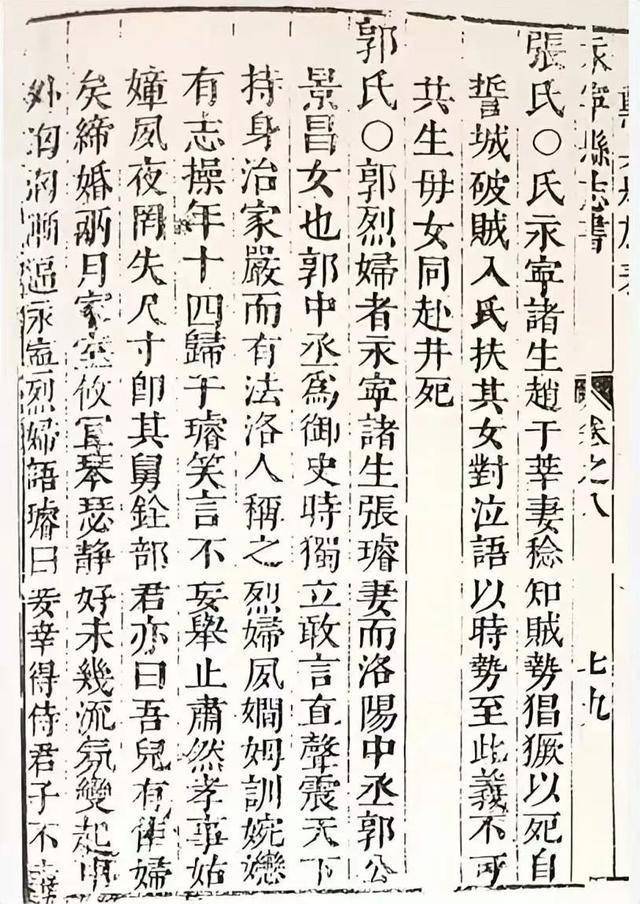 永寧縣志書 卷之八 七九
張氏〇氏永寧諸生趙于莘妻稔知賊勢猖獗以死自
誓城破賊入氏扶其女對泣語以時勢至此義不可
共生毋女同赴井死
郭氏〇郭烈婦者永寧諸生張璿妻而洛陽中丞郭公
景昌女也郭中丞為御史時獨立敢言直聲震天下
持身治家嚴而有法洛人稱之烈婦夙嫺姆訓婉戀
有志操年十四歸于璿笑言不妄舉止肅然孝事姑
嫜夙夜罔失尺寸卽其舅銓部君亦曰吾兒有佳婦
矣締婚兩月家室攸宜琴瑟静好未幾流氛變起中
外洶洶漸逼永寧烈婦語璿曰妾幸得侍君子不